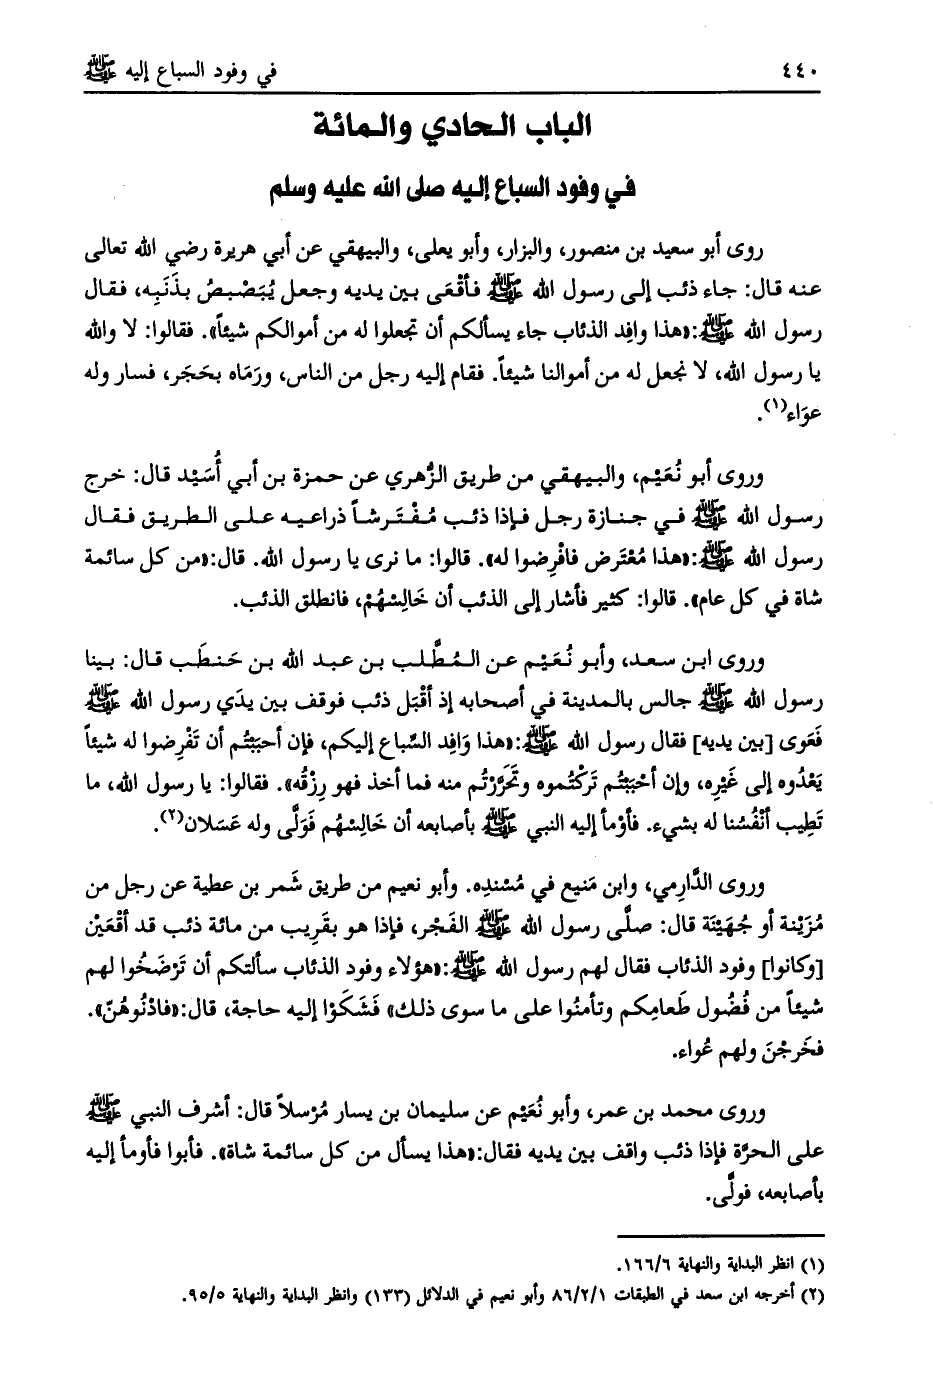 ٤٤٠ في وفود السباع إليه ﷺ
الباب الحادي والمائة
في وفود السباع إليه صلى الله عليه وسلم
روى أبو سعيد بن منصور، والبزار، وأبو يعلى، والبيهقي عن أبي هريرة رضي الله تعالى
عنه قال: جاء ذئب إلى رسول الله ﷺ فأقْعَى بين يديه وجعل يُبَصْبصُ بذَنَبِه، فقال
رسول الله ﷺ:«هذا وافِد الذئاب جاء يسألكم أن تجعلوا له من أموالكم شيئاً». فقالوا: لا والله
يا رسول الله، لا نجعل له من أموالنا شيئاً. فقام إليه رجل من الناس، ورَمَاه بحَجَر، فسار وله
عوَاء(١).
وروى أبو نُعَيْم، والبيهقي من طريق الزُّهري عن حمزة بن أبي أُسَيْد قال: خرج
رسول الله ﷺ في جنازة رجل فإذا ذئب مُفْتَرشاً ذراعيه على الطريق فقال
رسول الله ﷺ:«هذا مُعْتَرض فافْرِضوا له». قالوا: ما نرى يا رسول الله. قال:«من كل سائمة
شاة في كل عام». قالوا: كثير فأشار إلى الذئب أن خَالِسْهُمْ، فانطلق الذئب.
وروى ابن سعد، وأبو نُعَيْم عن المُطَّلب بن عبد الله بن حَنطَب قال: بينا
رسول الله ﷺ جالس بالمدينة في أصحابه إذ أقْبَل ذئب فوقف بين يدَي رسول الله ﷺ
فَعَوى [بين يديه] فقال رسول الله ﷺ:«هذا وَافِد السِّباع إليكم، فإن أحبَبْتُم أن تَفْرِضوا له شيئاً
يَعْدُوه إلى غَيْرِه، وإن أحْبَبْتُم تَرَكْتُموه وتَحَرَّزْتُم منه فما أخذ فهو رِزْقُه». فقالوا: يا رسول الله، ما
تَطِيب أنْفُسُنا له بشيء. فأوْمأ إليه النبي ﷺ بأصابعه أن خَالِسْهُم فَوَلَّى وله عَسَلان(٢).
وروى الدَّارِمي، وابن مَنيع في مُسْندِه. وأبو نعيم من طريق شَمر بن عطية عن رجل من
مُزَيْنة أو جُهَيْنَة قال: صلَّى رسول الله ﷺ الفَجْر، فإذا هو بقَرِيب من مائة ذئب قد أقْعَيْن
[وكانوا] وفود الذئاب فقال لهم رسول الله ﷺ:«هؤلاء وفود الذئاب سألتكم أن تَرْضَخُوا لهم
شيئاً من فُضُول طَعامِكم وتأمنُوا على ما سوى ذلك» فَشَكَوْا إليه حاجة، قال:«فادْنُوهُنّ».
فخَرجْنَ ولهم عُواء.
وروى محمد بن عمر، وأبو نُعَيْم عن سليمان بن يسار مُرْسلاً قال: أشرف النبي ﷺ
على الحرَّة فإذا ذئب واقف بين يديه فقال:«هذا يسأل من كل سائمة شاة». فأبوا فأومأ إليه
بأصابعه، فولَّى.
(١) انظر البداية والنهاية ١٦٦/٦.
(٢) أخرجه ابن سعد في الطبقات ٨٦/٢/١ وأبو نعيم في الدلائل (١٣٣) وانظر البداية والنهاية ٩٥/٥.